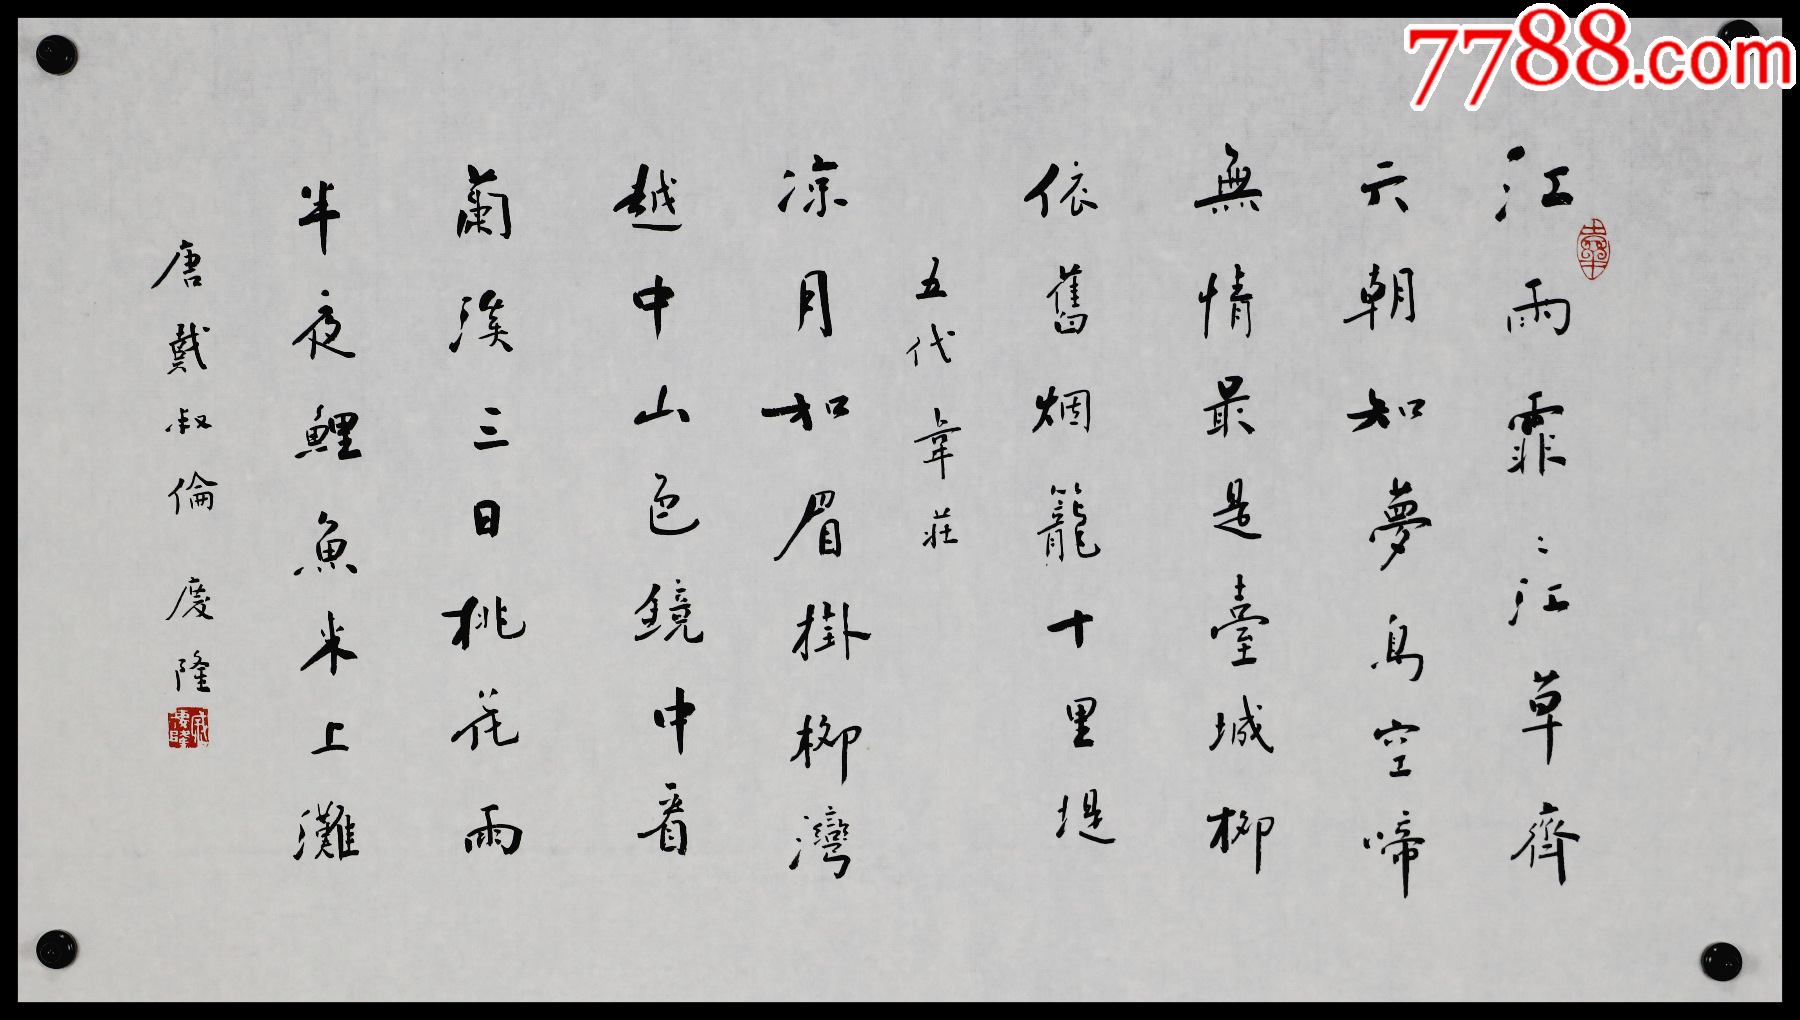 江雨霏〻江草齊
六朝如夢鳥空啼
無情最是臺城柳
依舊烟籠十里堤
五代韋莊
凉月如眉掛柳灣
越中山色鏡中看
蘭溪三日桃花雨
半夜鯉魚來上灘
唐戴叔倫 慶隆
7788.com